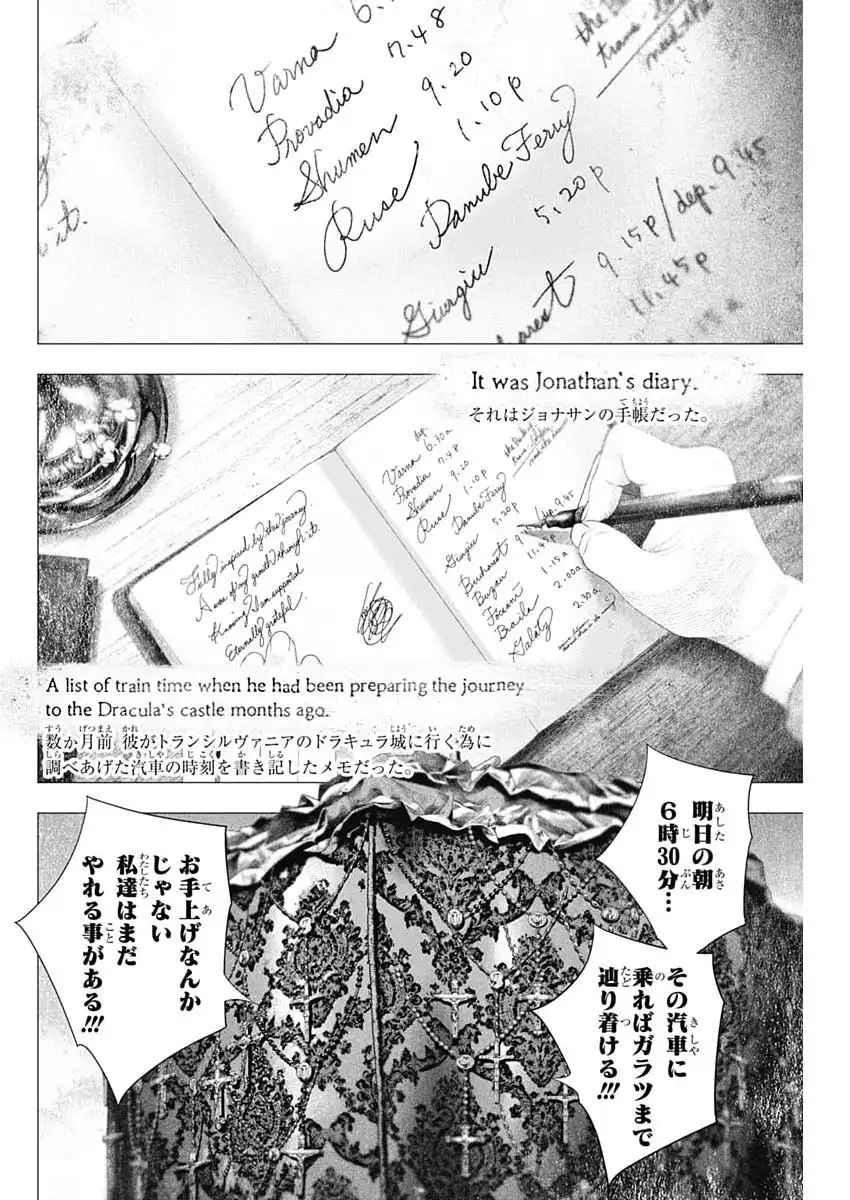 Varna 6.
Provadia 7.48
Shumen 9.20
Ruse 1.10p
Danube Ferry
Giurgiu 5.20p
9.15p/dep. 9.45
11.45p
it.
It was Jonathan's diary.
それはジョナサンの手帳だった。
dep.
Varna 6.30a
Provadia 7.48
Shumen 9.20
Ruse 1.10p
Danube Ferry
Giurgiu 5.20p
Bucharest 9 /dep. 9.45
Buzau 11.45p
Focsani 1.15a
Braila 2.00a
Galatz 2.30a
Fully inspired by this journey
Eternally grateful
A list of train time when he had been preparing the journey
to the Dracula's castle months ago.
数か月前 彼がトランシルヴァニアのドラキュラ城に行く為に
調べあげた汽車の時刻を書き記したメモだった。
明日の朝
6時30分…
その汽車に
乗ればガラツまで
辿り着ける!!!
お手上げなんか
じゃない
私達はまだ
やれる事がある!!!